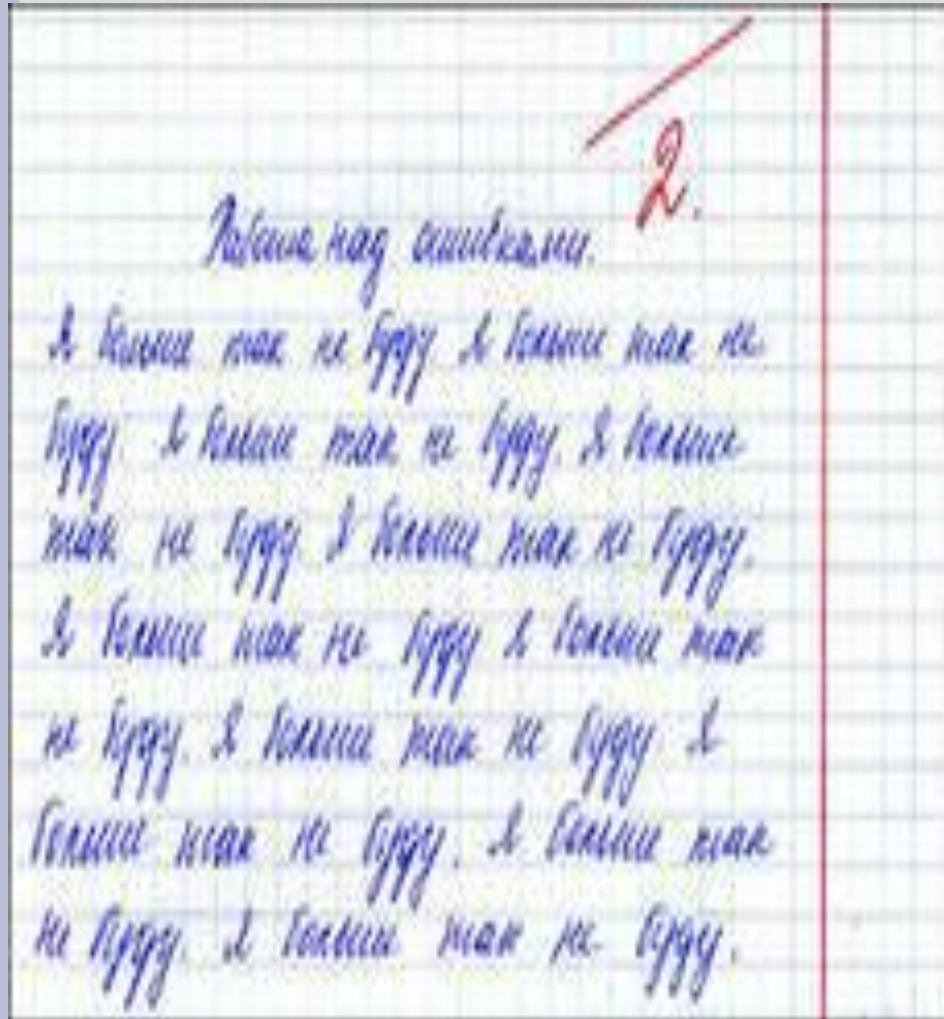 2.
Работа над ошибками.
Я больше так не буду Я больше так не
буду Я больше так не буду. Я больше
так не буду Я больше так не буду.
Я больше так не буду Я больше так
не буду. Я больше так не буду Я
больше так не буду. Я больше так
не буду. Я больше так не буду.